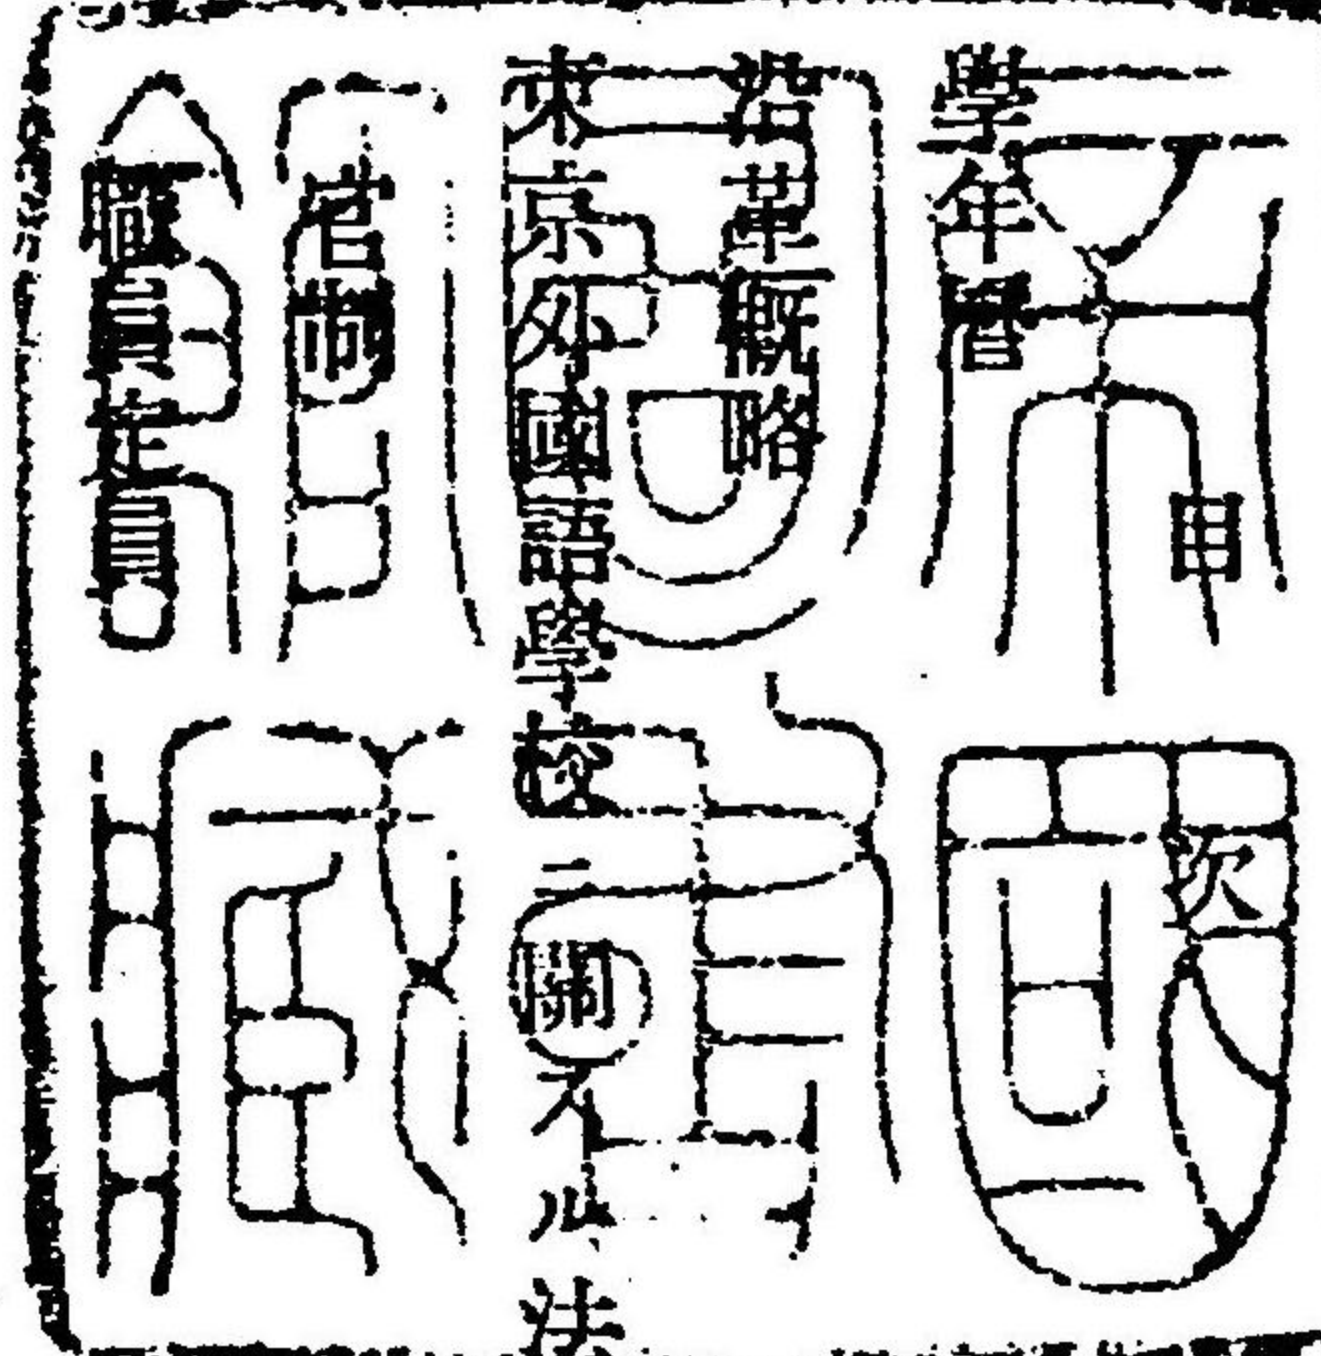 目次
學年曆
沿革概略
東京外國語學校ニ關スル法
官制
職員定員
帝國
圖書
館藏